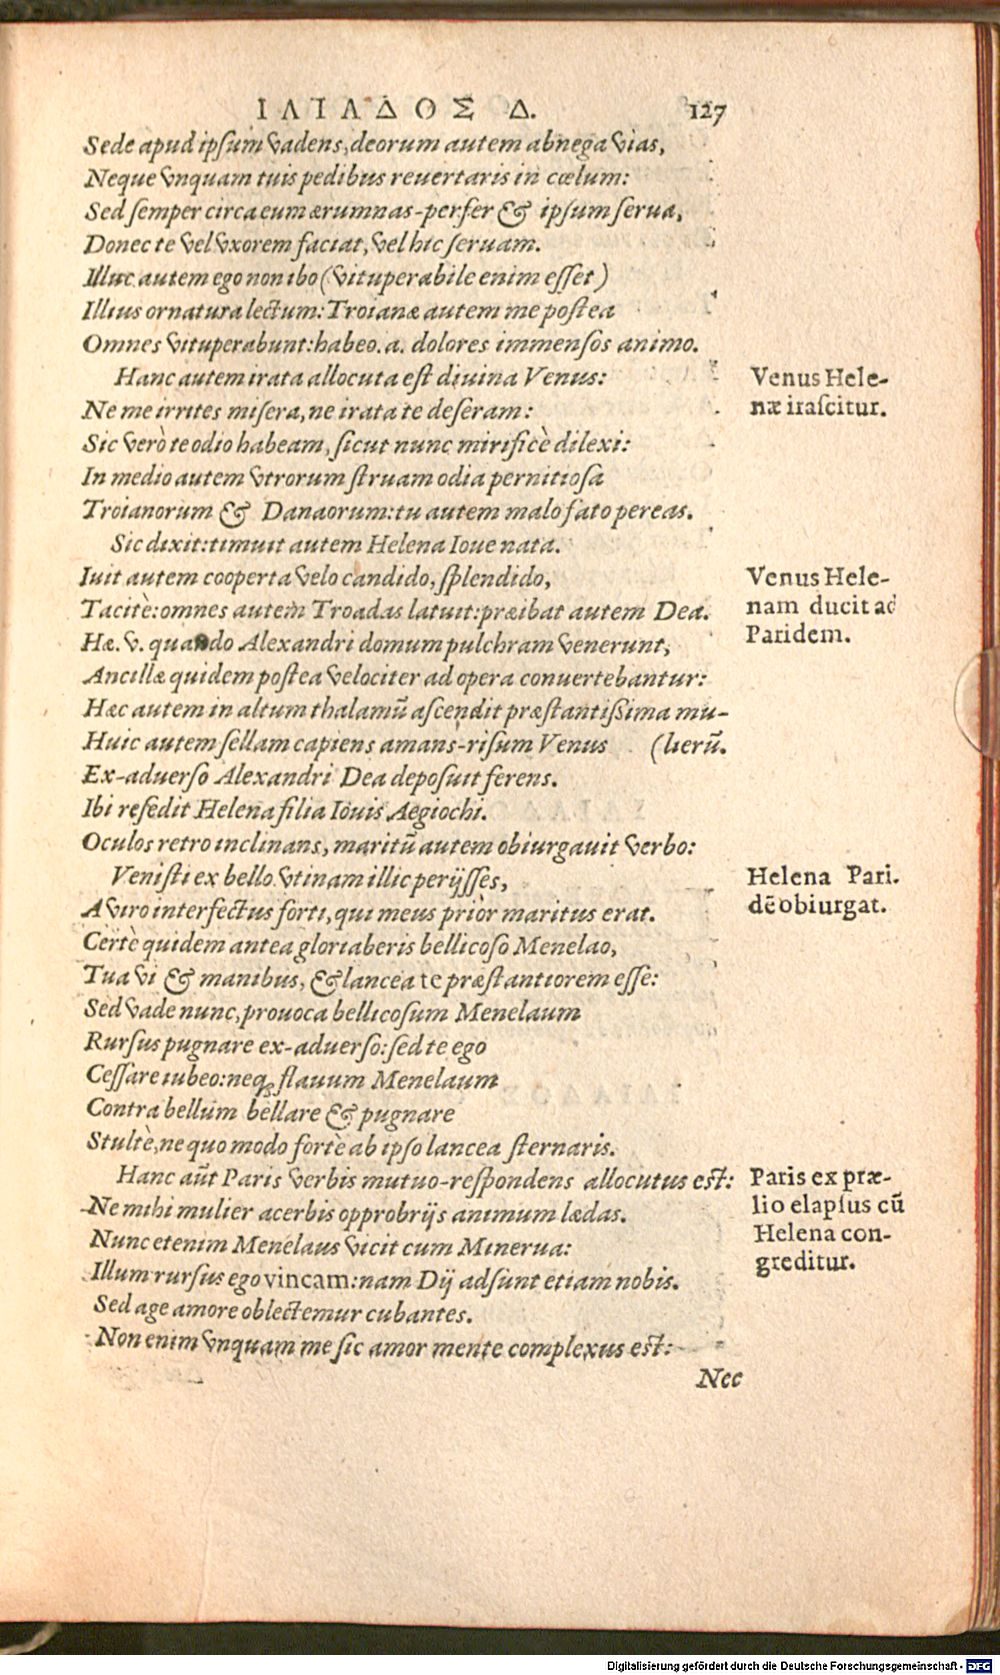 ΙΛΙΑΔΟΣ Δ. 127
Sede apud ipsum vadens, deorum autem abnega vias,
Neque vnquam tuis pedibus reuertaris in cœlum:
Sed semper circa eum ærumnas-perfer & ipsum serua,
Donec te vel vxorem faciat, vel hic seruam.
Illuc autem ego non ibo (vituperabile enim esset)
Illius ornatura lectum: Troianæ autem me postea
Omnes vituperabunt: habeo. a. dolores immensos animo.
Hanc autem irata allocuta est diuina Venus:
Venus Hele-
næ irascitur.
Ne me irrites misera, ne irata te deseram:
Sic verò te odio habeam, sicut nunc mirificè dilexi:
In medio autem vtrorum struam odia pernitiosa
Troianorum & Danaorum: tu autem malo fato pereas.
Sic dixit: timuit autem Helena Ioue nata.
Iuit autem cooperta velo candido, splendido,
Venus Hele-
nam ducit ad
Paridem.
Tacitè: omnes autem Troadas latuit: præibat autem Dea.
Hæ. v. quando Alexandri domum pulchram venerunt,
Ancillæ quidem postea velociter ad opera conuertebantur:
Hæc autem in altum thalamū ascendit præstantißima mu-
Huic autem sellam capiens amans-risum Venus (lierū.
Ex-aduerso Alexandri Dea deposuit ferens.
Ibi resedit Helena filia Iouis Aegiochi.
Oculos retro inclinans, maritū autem obiurgauit verbo:
Venisti ex bello. vtinam illic perijsses,
Helena Pari.
dē obiurgat.
A viro interfectus forti, qui meus priòr maritus erat.
Certè quidem antea gloriaberis bellicoso Menelao,
Tua vi & manibus, & lancea te præstantiorem esse:
Sed vade nunc, prouoca bellicosum Menelaum
Rursus pugnare ex-aduerso: sed te ego
Cessare iubeo: neq; flauum Menelaum
Contra bellum bellare & pugnare
Stultè, ne quo modo fortè ab ipso lancea sternaris.
Hanc aūt Paris verbis mutuo-respondens allocutus est:
Paris ex præ-
lio elapsus cū
Helena con-
greditur.
Ne mihi mulier acerbis opprobrijs animum lædas.
Nunc etenim Menelaus vicit cum Minerua:
Illum rursus ego vincam: nam Dij adsunt etiam nobis.
Sed age amore oblectemur cubantes.
Non enim vnquam me sic amor mente complexus est:
Nec
Digitalisierung gefördert durch die Deutsche Forschungsgemeinschaft - DFG